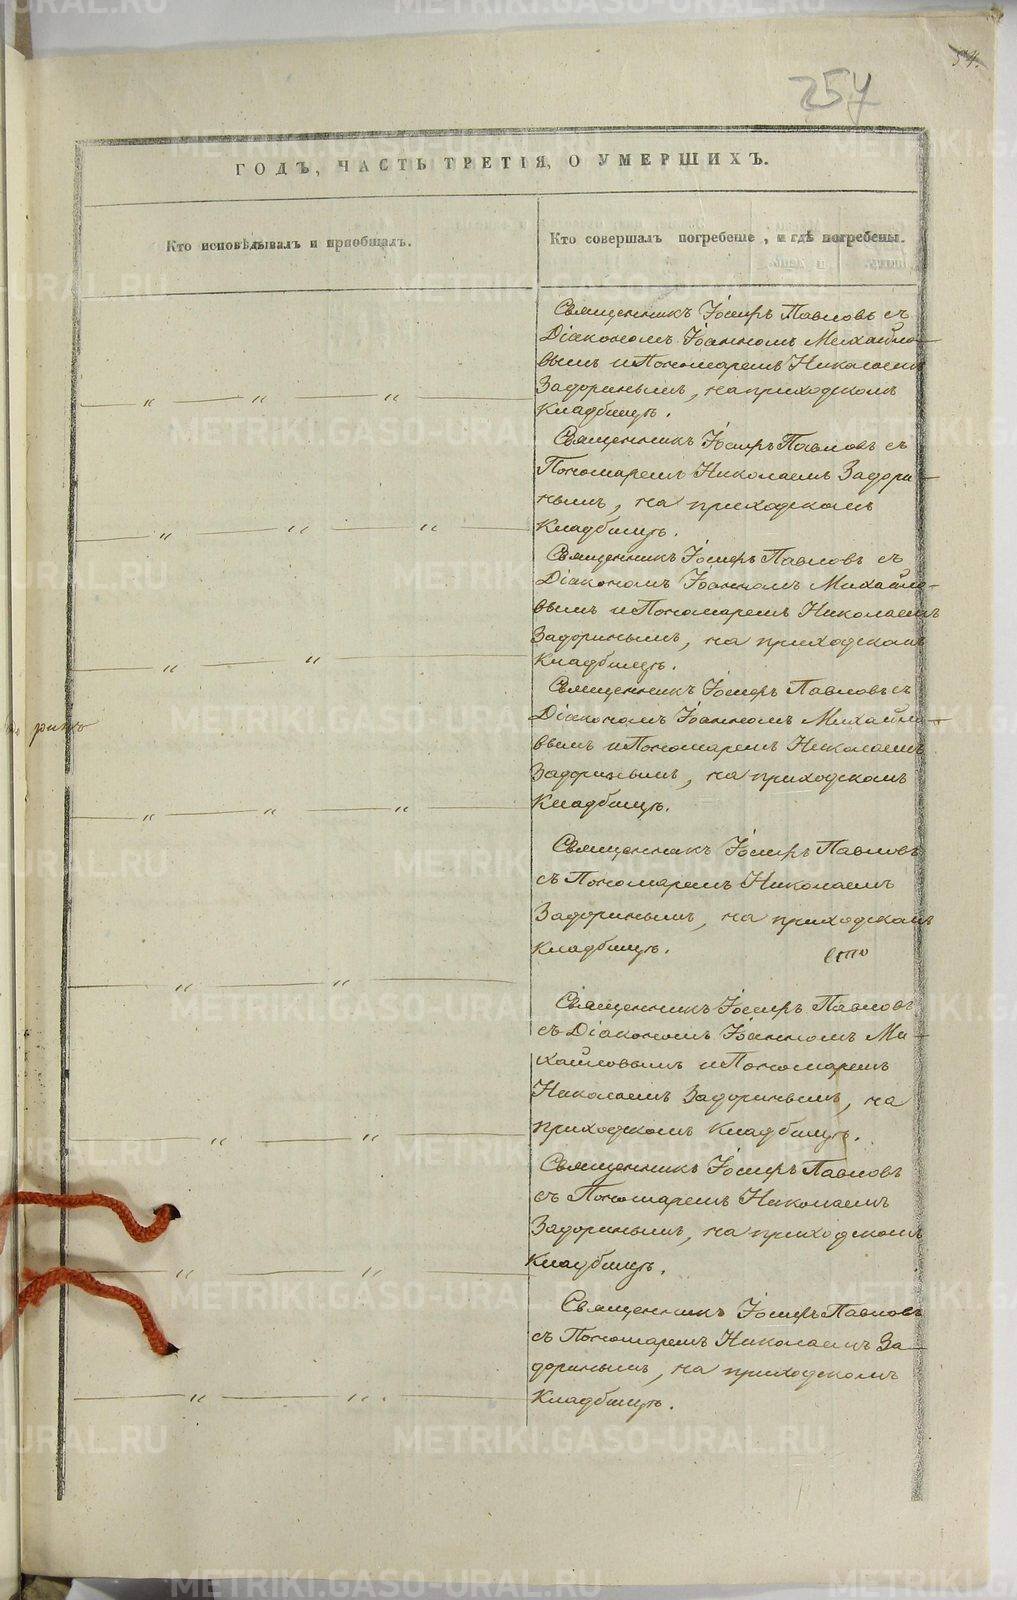 54.
257
ГОДЪ, ЧАСТЬ ТРЕТІЯ, О УМЕРШИХЪ.
Кто исповѣдывалъ и приобщалъ.
Кто совершалъ погребеніе, и гдѣ погребены.
Священникъ Іосифъ Павловъ съ
Діакономъ Іоанномъ Михайло-
вымъ и Пономаремъ Николаемъ
Задоринымъ, на приходскомъ
Кладбищѣ.
Священникъ Іосифъ Павловъ съ
Пономаремъ Николаемъ Задори-
нымъ, на приходскомъ
Кладбищѣ.
Священникъ Іосифъ Павловъ съ
Діакономъ Іоанномъ Михайло-
вымъ и Пономаремъ Николаемъ
Задоринымъ, на приходскомъ
Кладбищѣ.
Священникъ Іосифъ Павловъ съ
Діакономъ Іоанномъ Михайло-
вымъ и Пономаремъ Николаемъ
Задоринымъ, на приходскомъ
Кладбищѣ.
Священникъ Іосифъ Павловъ
съ Пономаремъ Николаемъ
Задоринымъ, на приходскомъ
Кладбищѣ.
Священникъ Іосифъ Павловъ
съ Діакономъ Іоанномъ Ми-
хайловымъ и Пономаремъ
Николаемъ Задоринымъ, на
приходскомъ Кладбищѣ.
Священникъ Іосифъ Павловъ
съ Пономаремъ Николаемъ
Задоринымъ, на приходскомъ
Кладбищѣ.
Священникъ Іосифъ Павловъ
съ Пономаремъ Николаемъ За-
доринымъ, на приходскомъ
Кладбищѣ.
METRIKI.GASO-URAL.RU